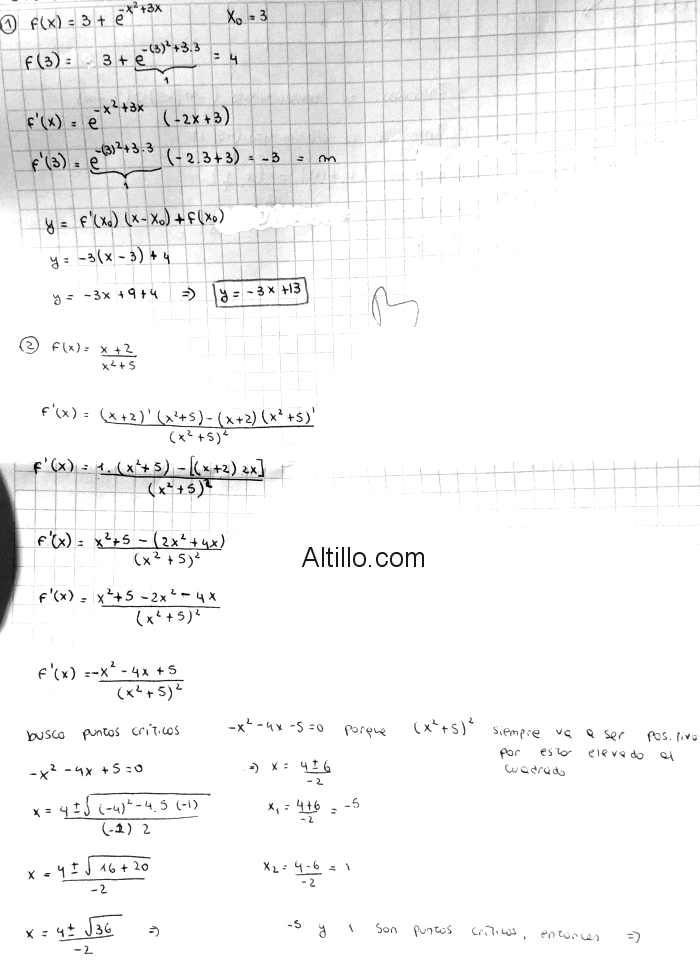 ① f(x) = 3 + e^(-x²+3x)    x₀ = 3
f(3) = 3 + e^(-(3)²+3.3) = 4
1
f'(x) = e^(-x²+3x) (-2x+3)
f'(3) = e^(-(3)²+3.3) (-2.3+3) = -3 = m
1
y = f'(x₀) (x-x₀) + f(x₀)
y = -3(x-3) + 4
y = -3x + 9 + 4 => y = -3x + 13
② f(x) = (x+2)/(x²+5)
f'(x) = ((x+2)' (x²+5) - (x+2) (x²+5)')/(x²+5)²
f'(x) = (1.(x²+5) - [(x+2) 2x])/(x²+5)²
f'(x) = (x²+5 - (2x²+4x))/(x²+5)²
Altillo.com
f'(x) = (x²+5 - 2x² - 4x)/(x²+5)²
f'(x) = (-x² - 4x + 5)/(x²+5)²
busco puntos críticos    -x² - 4x - 5 = 0 porque (x²+5)² siempre va a ser positivo
por estar elevado al
cuadrado
-x² - 4x + 5 = 0    => x = (4 ± 6)/-2
x = (4 ± √((-4)² - 4.5 (-1)))/((-1) 2)    x₁ = (4+6)/-2 = -5
x = (4 ± √(16+20))/-2    x₂ = (4-6)/-2 = 1
x = (4 ± √36)/-2 =>    -5 y 1 son puntos críticos, entonces =>